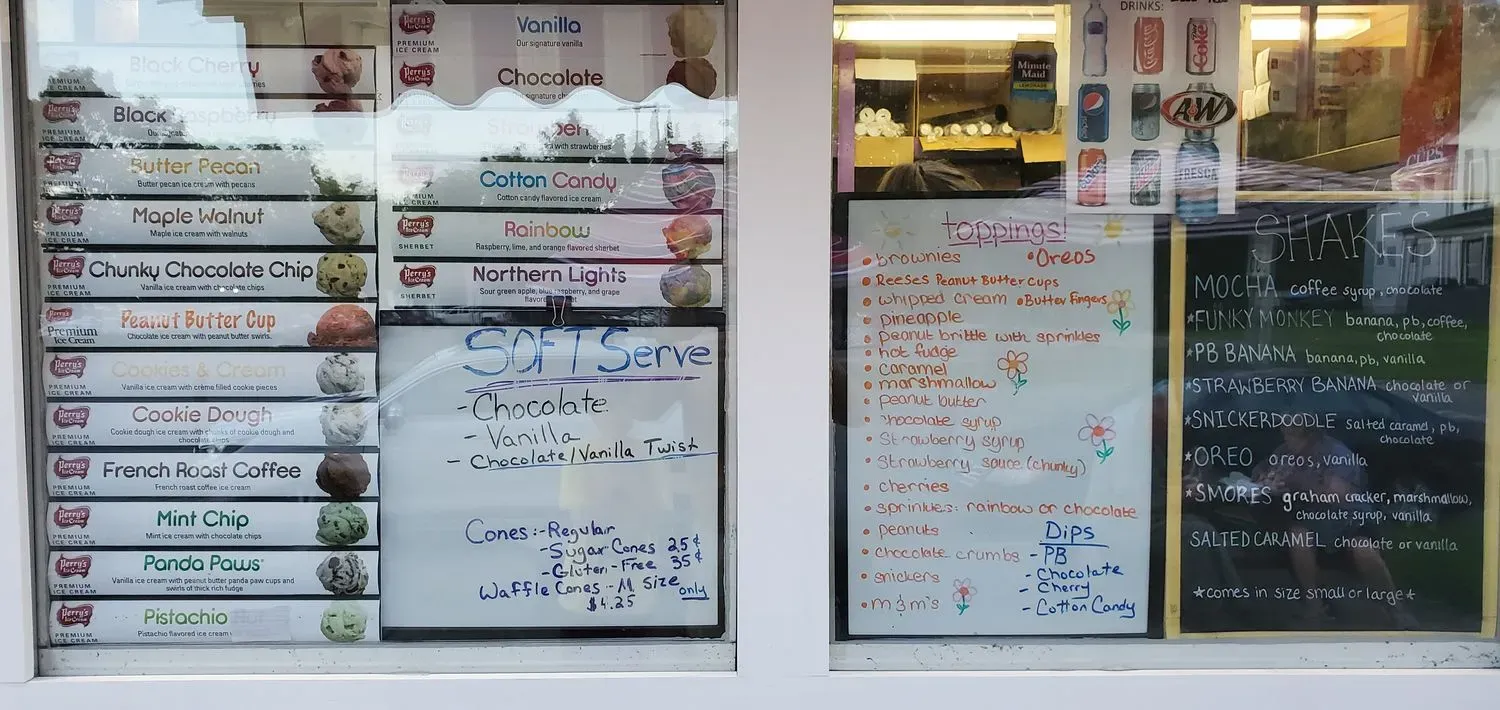 Perry's
Ice Cream
PREMIUM
ICE CREAM
Black Cherry
PREMIUM
ICE CREAM
Perry's
Ice Cream
Black Raspberry
PREMIUM
ICE CREAM
Perry's
Ice Cream
Butter Pecan
Butter pecan ice cream with pecans
PREMIUM
ICE CREAM
Perry's
Ice Cream
Maple Walnut
Maple ice cream with walnuts
PREMIUM
ICE CREAM
Perry's
Ice Cream
Chunky Chocolate Chip
Vanilla ice cream with chocolate chips
PREMIUM
ICE CREAM
Perry's
Ice Cream
Peanut Butter Cup
Chocolate ice cream with peanut butter swirls.
Premium
Ice Cream
Perry's
Ice Cream
Cookies & Cream
Vanilla ice cream with crème filled cookie pieces
PREMIUM
ICE CREAM
Perry's
Ice Cream
Cookie Dough
Cookie dough ice cream with chunks of cookie dough and
chocolate chips
PREMIUM
ICE CREAM
Perry's
Ice Cream
French Roast Coffee
French roast coffee ice cream
PREMIUM
ICE CREAM
Perry's
Ice Cream
Mint Chip
Mint ice cream with chocolate chips
PREMIUM
ICE CREAM
Perry's
Ice Cream
Panda Paws
Vanilla ice cream with peanut butter panda paw cups and
swirls of thick rich fudge
PREMIUM
ICE CREAM
Perry's
Ice Cream
Pistachio
Pistachio flavored ice cream
PREMIUM
ICE CREAM
Perry's
Ice Cream
Vanilla
Our signature vanilla
PREMIUM
ICE CREAM
Perry's
Ice Cream
Chocolate
PREMIUM
ICE CREAM
Strawberry
with strawberries
Cotton Candy
Cotton candy flavored ice cream
Perry's
Ice Cream
Rainbow
Raspberry, lime, and orange flavored sherbet
SHERBET
Perry's
Ice Cream
Northern Lights
Sour green apple, blue raspberry, and grape
SHERBET
SOFT Serve
- Chocolate
- Vanilla
- Chocolate/Vanilla Twist
Cones:-Regular
-Sugar Cones 25¢
-Gluten-Free 35¢
Waffle Cones - M. Size only
$4.25
DRINKS:
Minute
Maid
LEMONADE
Coca-Cola
Diet
Coke
pepsi
A&W
FRESCA
CUPS
toppings!
• brownies
• Oreos
• Reeses Peanut Butter Cups
• whipped cream • Butter Fingers
• pineapple
• peanut brittle with sprinkles
• hot fudge
• caramel
• marshmallow
• peanut butter
• chocolate syrup
• Strawberry syrup
• Strawberry sauce (chunky)
• cherries
• sprinkles: rainbow or chocolate
• peanuts
• chocolate crumbs
• snickers
• m & m's
Dips
- PB
- Chocolate
- Cherry
- Cotton Candy
SHAKES
MOCHA coffee syrup, chocolate
*FUNKY MONKEY banana, pb, coffee,
chocolate
*PB BANANA banana, pb, vanilla
*STRAWBERRY BANANA chocolate or
vanilla
*SNICKERDOODLE salted caramel, pb,
chocolate
*OREO oreos, vanilla
*SMORES graham cracker, marshmallow,
chocolate syrup, vanilla
SALTED CARAMEL chocolate or vanilla
*comes in size small or large*